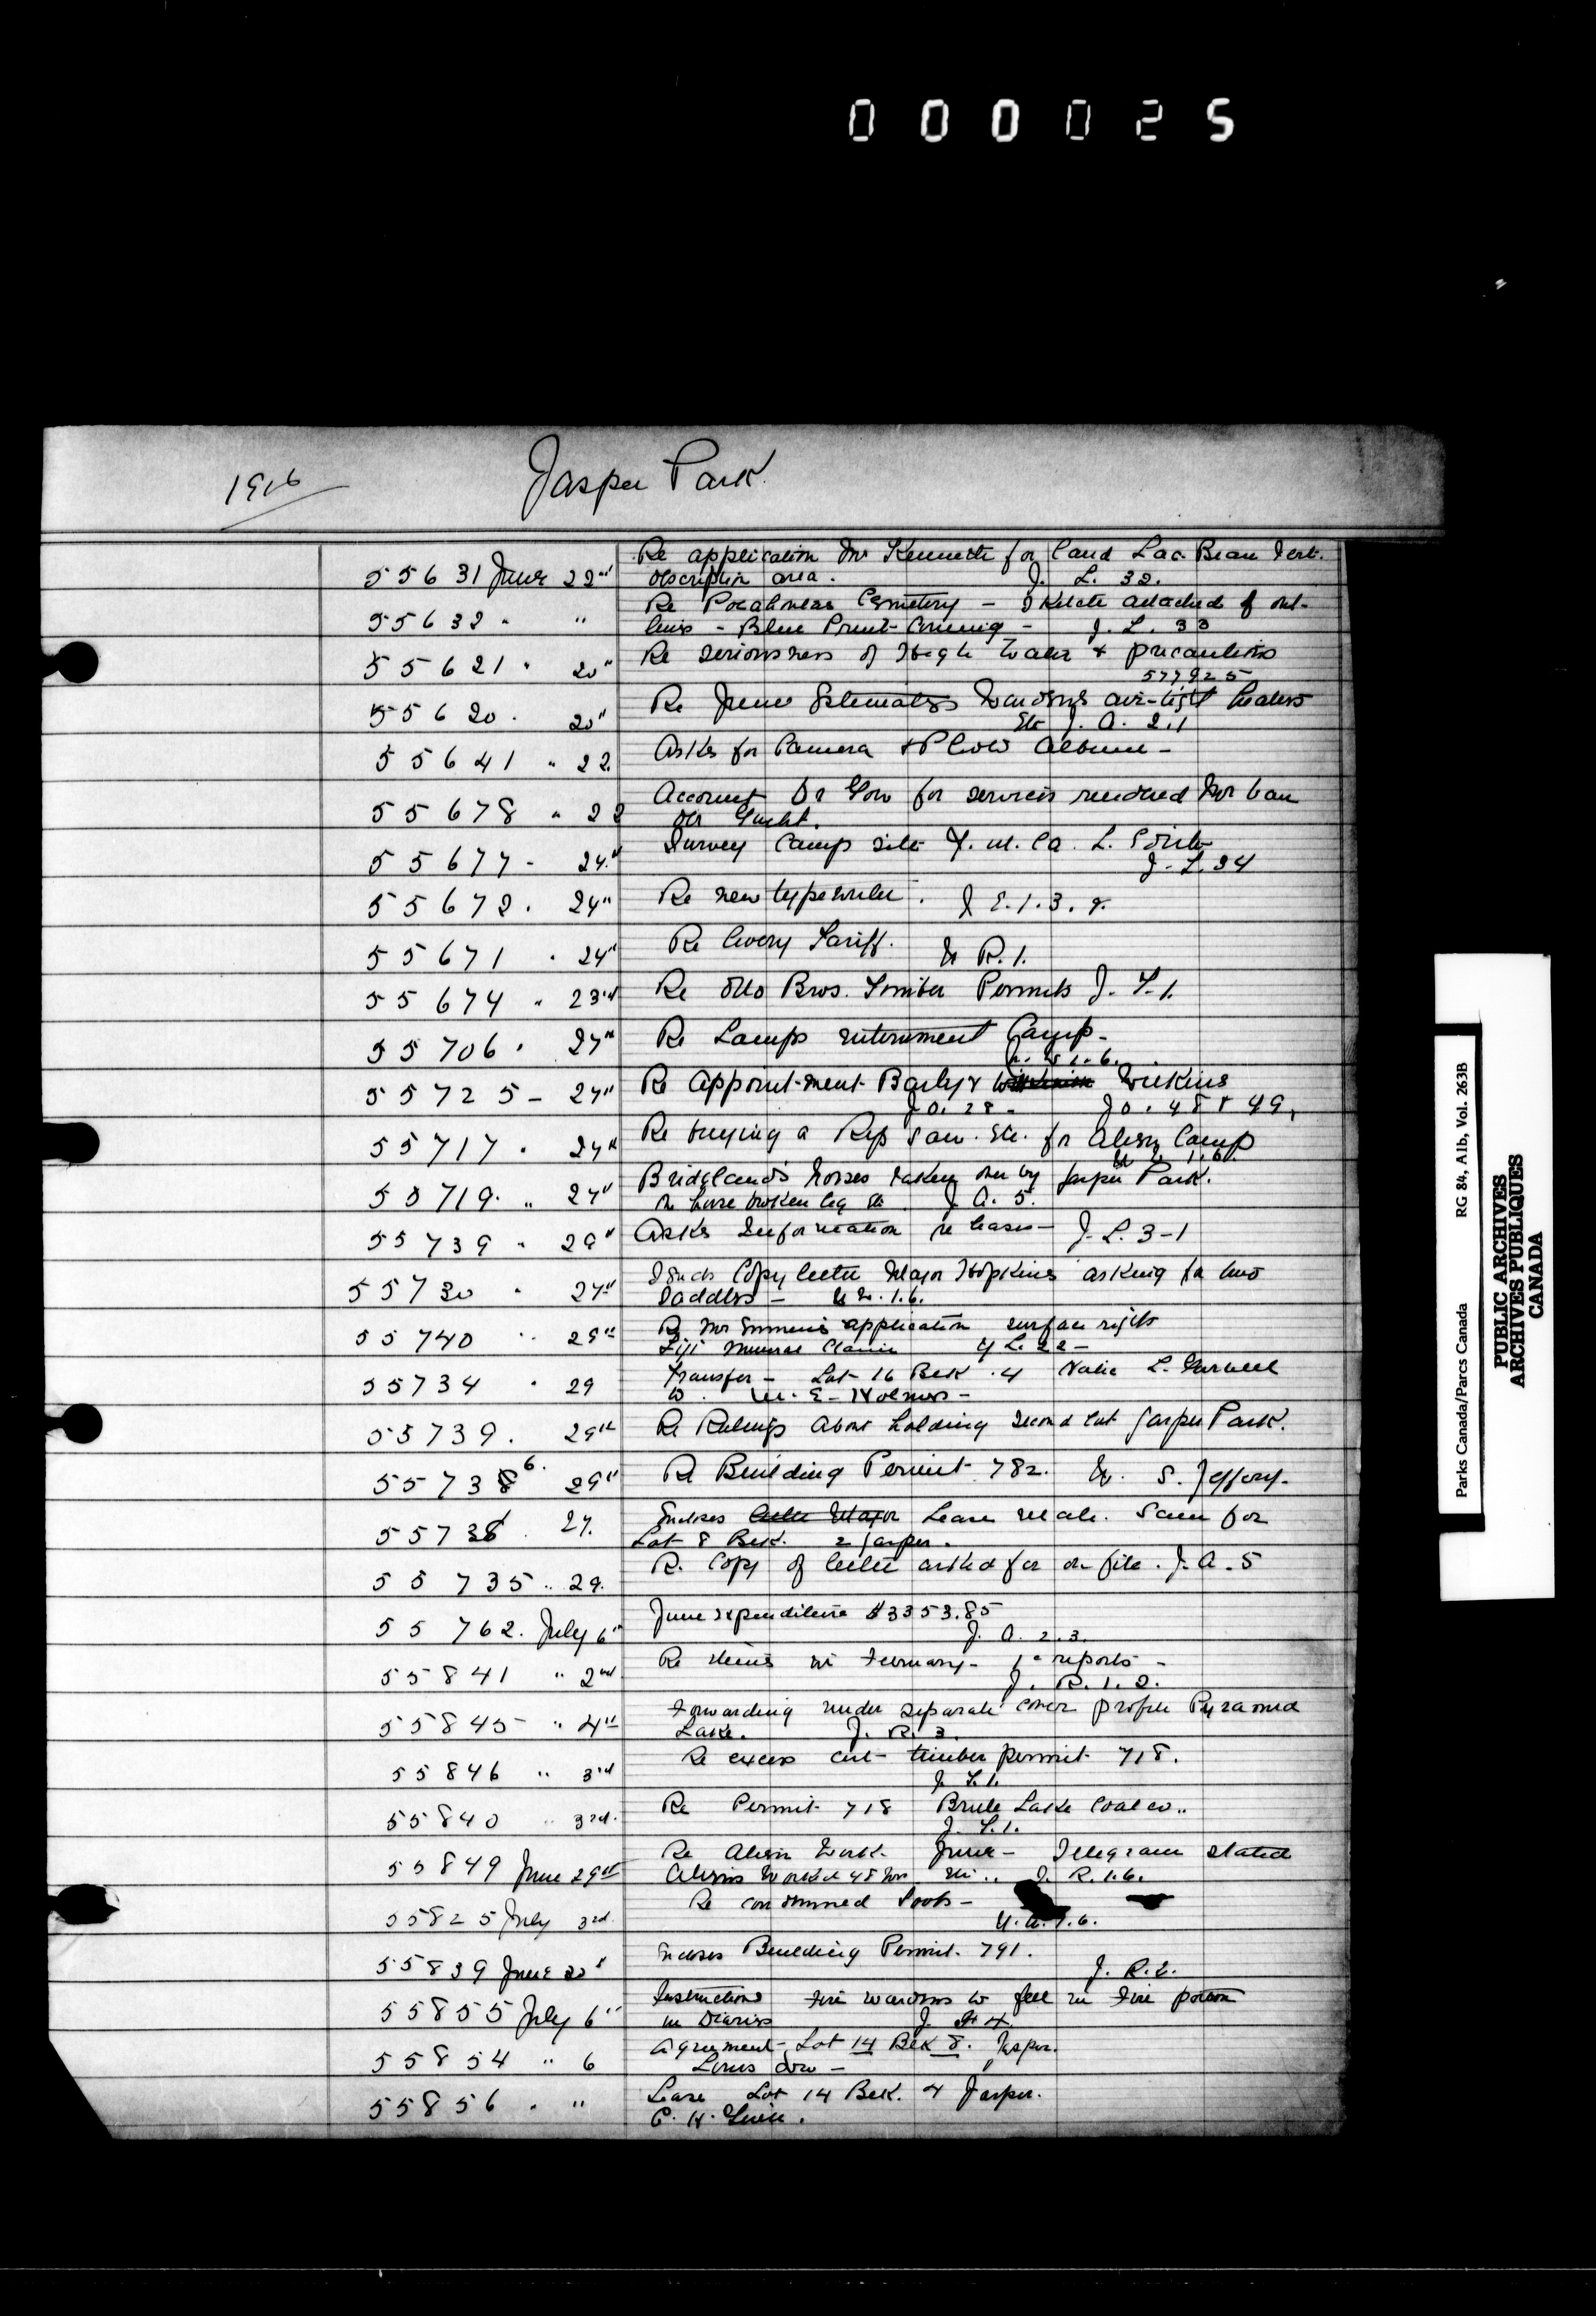 000025
1916
Jasper Park
55631 June 22nd Re application Mr Kenneth for land Lac. Beau Vert.
description area. J. L. 32.
55632 " " Re Pocahontas Cemetery – Sketch attached of
– Blue Print Coming – J. L. 33
55621 " 20" Re seriousness of High Water & precautions
577925
55620 " 20" Re June Estimates Wardens air-tight heaters
Etc J. A. 2.1
55641 " 22 Asks for Camera & Photo Album –
55678 " 22 Account Dr for services rendered
55677 " 24" Survey Camp site Y. M. Ca. L. Edith
J. L. 34
55672 " 24" Re new typewriter. J E. 1. 3.
55671 " 24" Re livery Tariff. R. 1.
55674 " 23rd Re Otto Bros. Timber Permits J. T. 1.
55706 " 27" Re Lamps internment Camp –
1. 6.
55725 – 27" Re Appointment & Wilkins
J O. 28 – J O. 48 & 49,
55717 " 27" Re buying a Rip Saw. Etc. for Alien Camp
1. 6.
55719. " 27" Bridgland's horses taken over by Jasper Park.
One horse broken leg Etc. J. A. 5.
55739 " 29" Asks Information re leases – J. L. 3-1
55730 " 27" Sends Copy letter Major Hopkins asking for two
Saddles – 1. 6.
55740 " 29th Re Mr application surface rights
Fiji Mineral Claim J L. 22 –
55734 " 29 Transfer – Lot 16 Blk. 4 L.
to M. E. Holmes –
55739. 29th Re Rulings about holding second lot Jasper Park.
557386. 29" Re Building Permit 782. S. Jeffery.
55738 . 27. Encloses Letter Major Lease Seale. Same for
Lot 8 Blk. 2 Jasper.
55735 " 29. Re. Copy of letter asked for on file. J. A. 5
55762. July 6" June expenditure $3353.85
J. A. 2. 3.
55841 " 2nd Re items in February – reports –
J. R. 1. 2.
55845 " 4th Forwarding under separate cover profile Pyramid
Lake. J. R. 3.
55846 " 3rd Re excess cut timber permit 718.
J. T. 1.
55840 " 3rd. Re Permit 718 Brule Lake Coal co..
J. T. 1.
55849 June 29th Re Alien Work. June – Telegram stated
Aliens worked 48 hrs J. R. 1. 6.
55825 July 3rd. Re condemned Tools –
1. 6.
55839 June 30" Encloses Building Permit. 791.
J. R. 2.
55855 July 6" Instructions Fire Wardens to fill in Fire portion
in Diaries J. 4
55854 " 6 Agreement – Lot 14 Blk 8. Jasper.
Louis –
55856 " " Lease Lot 14 Blk. 4 Jasper.
C. H.
Parks Canada/Parcs Canada RG 84, A1b, Vol. 263B
PUBLIC ARCHIVES
ARCHIVES PUBLIQUES
CANADA